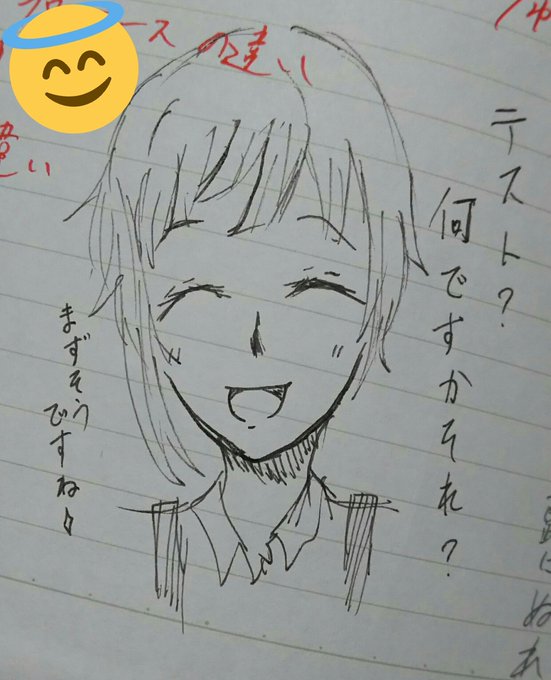 の違い
違い
テスト?
何ですかそれ?
まずそう
ですね